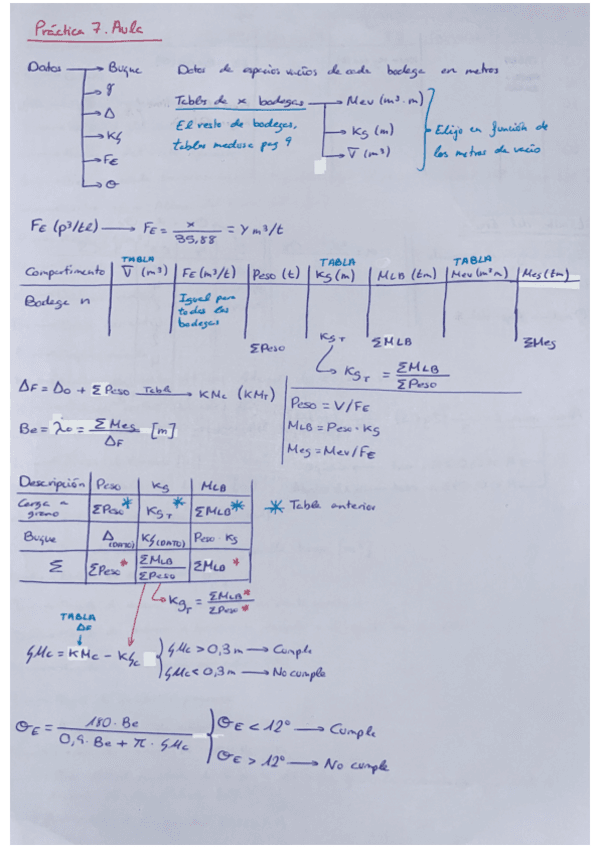 Práctica 7. Aula
Datos → Buque
γ
Δ
KG
FE
θ
Datos de espacios vacíos de cada bodega en metros
Tablas de x bodegas → Mev (m³·m)
KG (m)
V̅ (m³)
El resto de bodegas,
tablas medusa pag 9
Elijo en función de
los metros de vacío
FE (p³/tl) → FE = x/35,88 = Y m³/t
TABLA TABLA TABLA
Compartimento V̅ (m³) FE (m³/t) Peso (t) KG (m) MLB (tm) Mev (m³·m) Mes (tm)
Bodega n Igual para
todas las
bodegas
ΣPeso KG T ΣMLB ΣMes
KG T = ΣMLB/ΣPeso
ΔF = Δo + ΣPeso Tabla → KMc (KMT)
Peso = V/FE
Be = λo = ΣMes/ΔF [m]
MLB = Peso · KG
Mes = Mev/FE
Descripción Peso KG MLB
Carga a
grano ΣPeso* KG T* ΣMLB*
* Tabla anterior
Buque Δ (DATO) KG (DATO) Peso · KG
Σ ΣPeso* ΣMLB/ΣPeso ΣMLB*
KG T = ΣMLB*/ΣPeso*
TABLA
ΔF
GMc = KMc - KGc
GMc > 0,3 m → Cumple
GMc < 0,3 m → No cumple
θE = 180 · Be/0,9 · Be + π · GMc
θE < 12° → Cumple
θE > 12° → No cumple